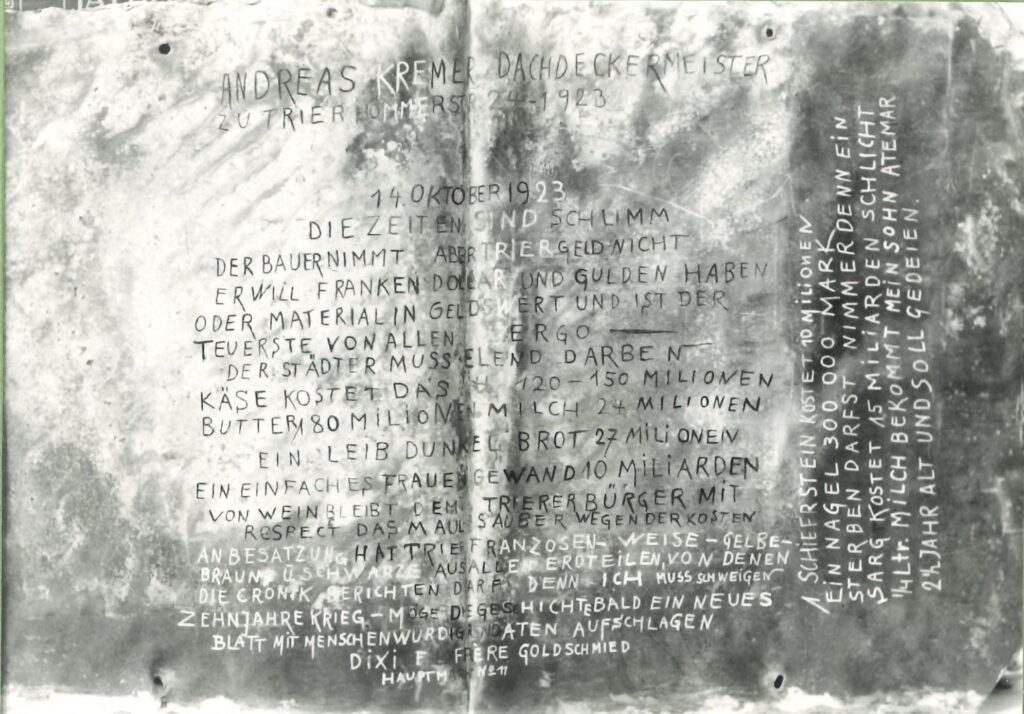 ANDREAS KREMER DACHDECKERMEISTER
ZU TRIER HOMMERSTR 24-1923
14. OKTOBER 1923
DIE ZEITEN SIND SCHLIMM
DER BAUER NIMMT ABER TRIERGELD NICHT
ER WILL FRANKEN DOLLAR UND GULDEN HABEN
ODER MATERIAL IN GELDSWERT UND IST DER
TEUERSTE VON ALLEN ERGO —
DER STÄDTER MUSS ELEND DARBEN
KÄSE KOSTET DAS 120-150 MILIONEN
BUTTER 180 MILIONEN MILCH 24 MILIONEN
EIN LEIB DUNKEL BROT 27 MILIONEN
EIN EINFACHES FRAUENGEWAND 10 MILIARDEN
VON WEIN BLEIBT DEM TRIERER BÜRGER MIT
RESPECT DAS MAUL SAUBER WEGEN DER KOSTEN
AN BESATZUNG HAT TRIER FRANZOSEN- WEISE-GELBE-
BRAUNE Ü SCHWARZE AUS ALLEN ERDTEILEN, VON DENEN
DIE CRONIK BERICHTEN DARF, DENN ICH MUSS SCHWEIGEN
ZEHN JAHRE KRIEG - MÖGE DIE GESCHICHTE BALD EIN NEUES
BLATT MIT MENSCHENWÜRDIGEN DATEN AUFSCHLAGEN
DIXI F FRERE GOLDSCHMIED
HAUPTM Nº 11
1 SCHIEFRSTEIN KOSTET 10 MILIONEN
EIN NAGEL 300 000 MARK
STERBEN DARFST NIMMER DENN EIN
SARG KOSTET 15 MILIARDEN SCHLICHT
1/4 LTR. MILCH BEKOMMT MEIN SOHN ATEMAR
2 1/2 JAHR ALT UND SOLL GEDEIEN.